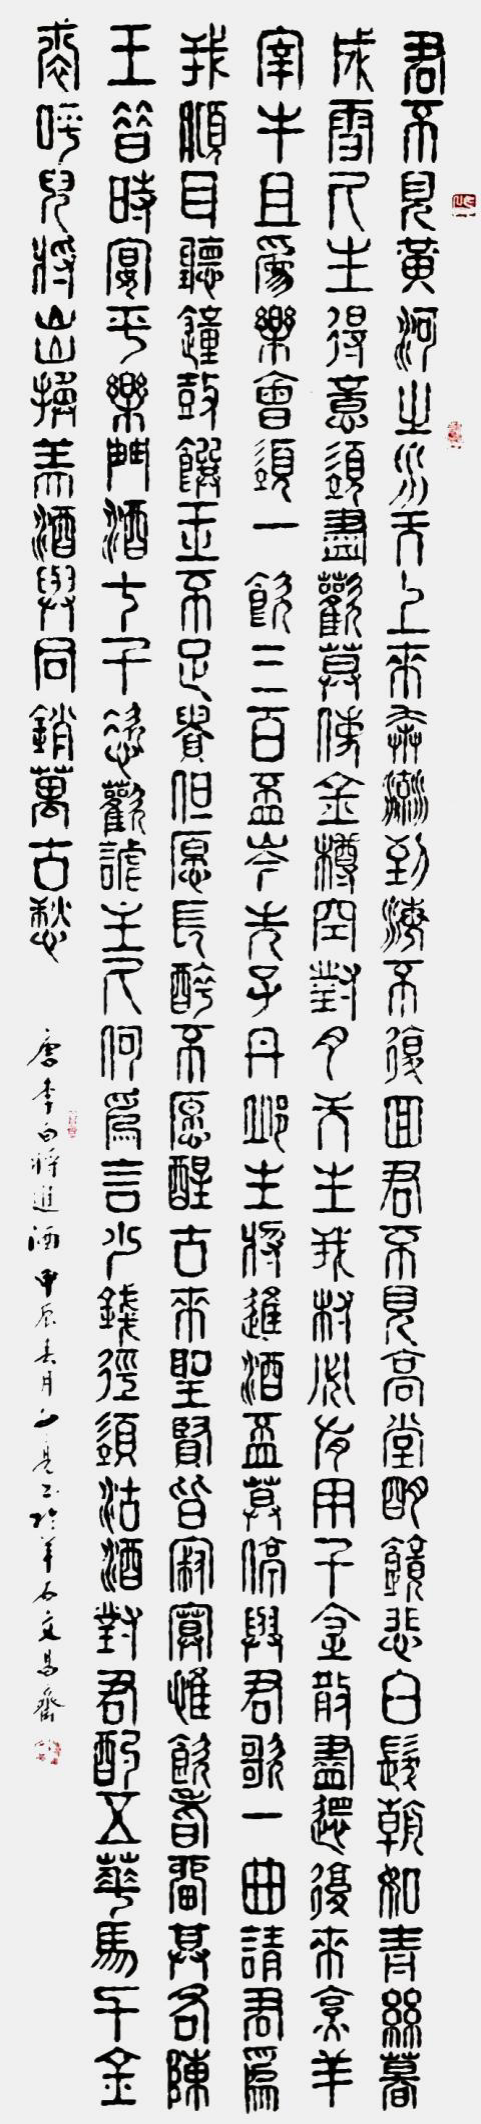 君不見黃河之水天上來奔流到海不復回君不見高堂明鏡悲白髮朝如青絲暮
成雪人生得意須盡歡莫使金樽空對月天生我材必有用千金散盡還復來烹羊
宰牛且爲樂會須一飲三百杯岑夫子丹邱生將進酒杯莫停與君歌一曲請君爲
我傾耳聽鐘鼓饌玉不足貴但愿長醉不愿醒古來聖賢皆寂寞惟飲者留其名陳
王昔時宴平樂斗酒十千恣歡謔主人何爲言少錢徑須沽酒對君酌五華馬千金
裘呼兒將出換美酒與同銷萬古愁
唐李白將進酒甲辰春月亮書於羊石齋